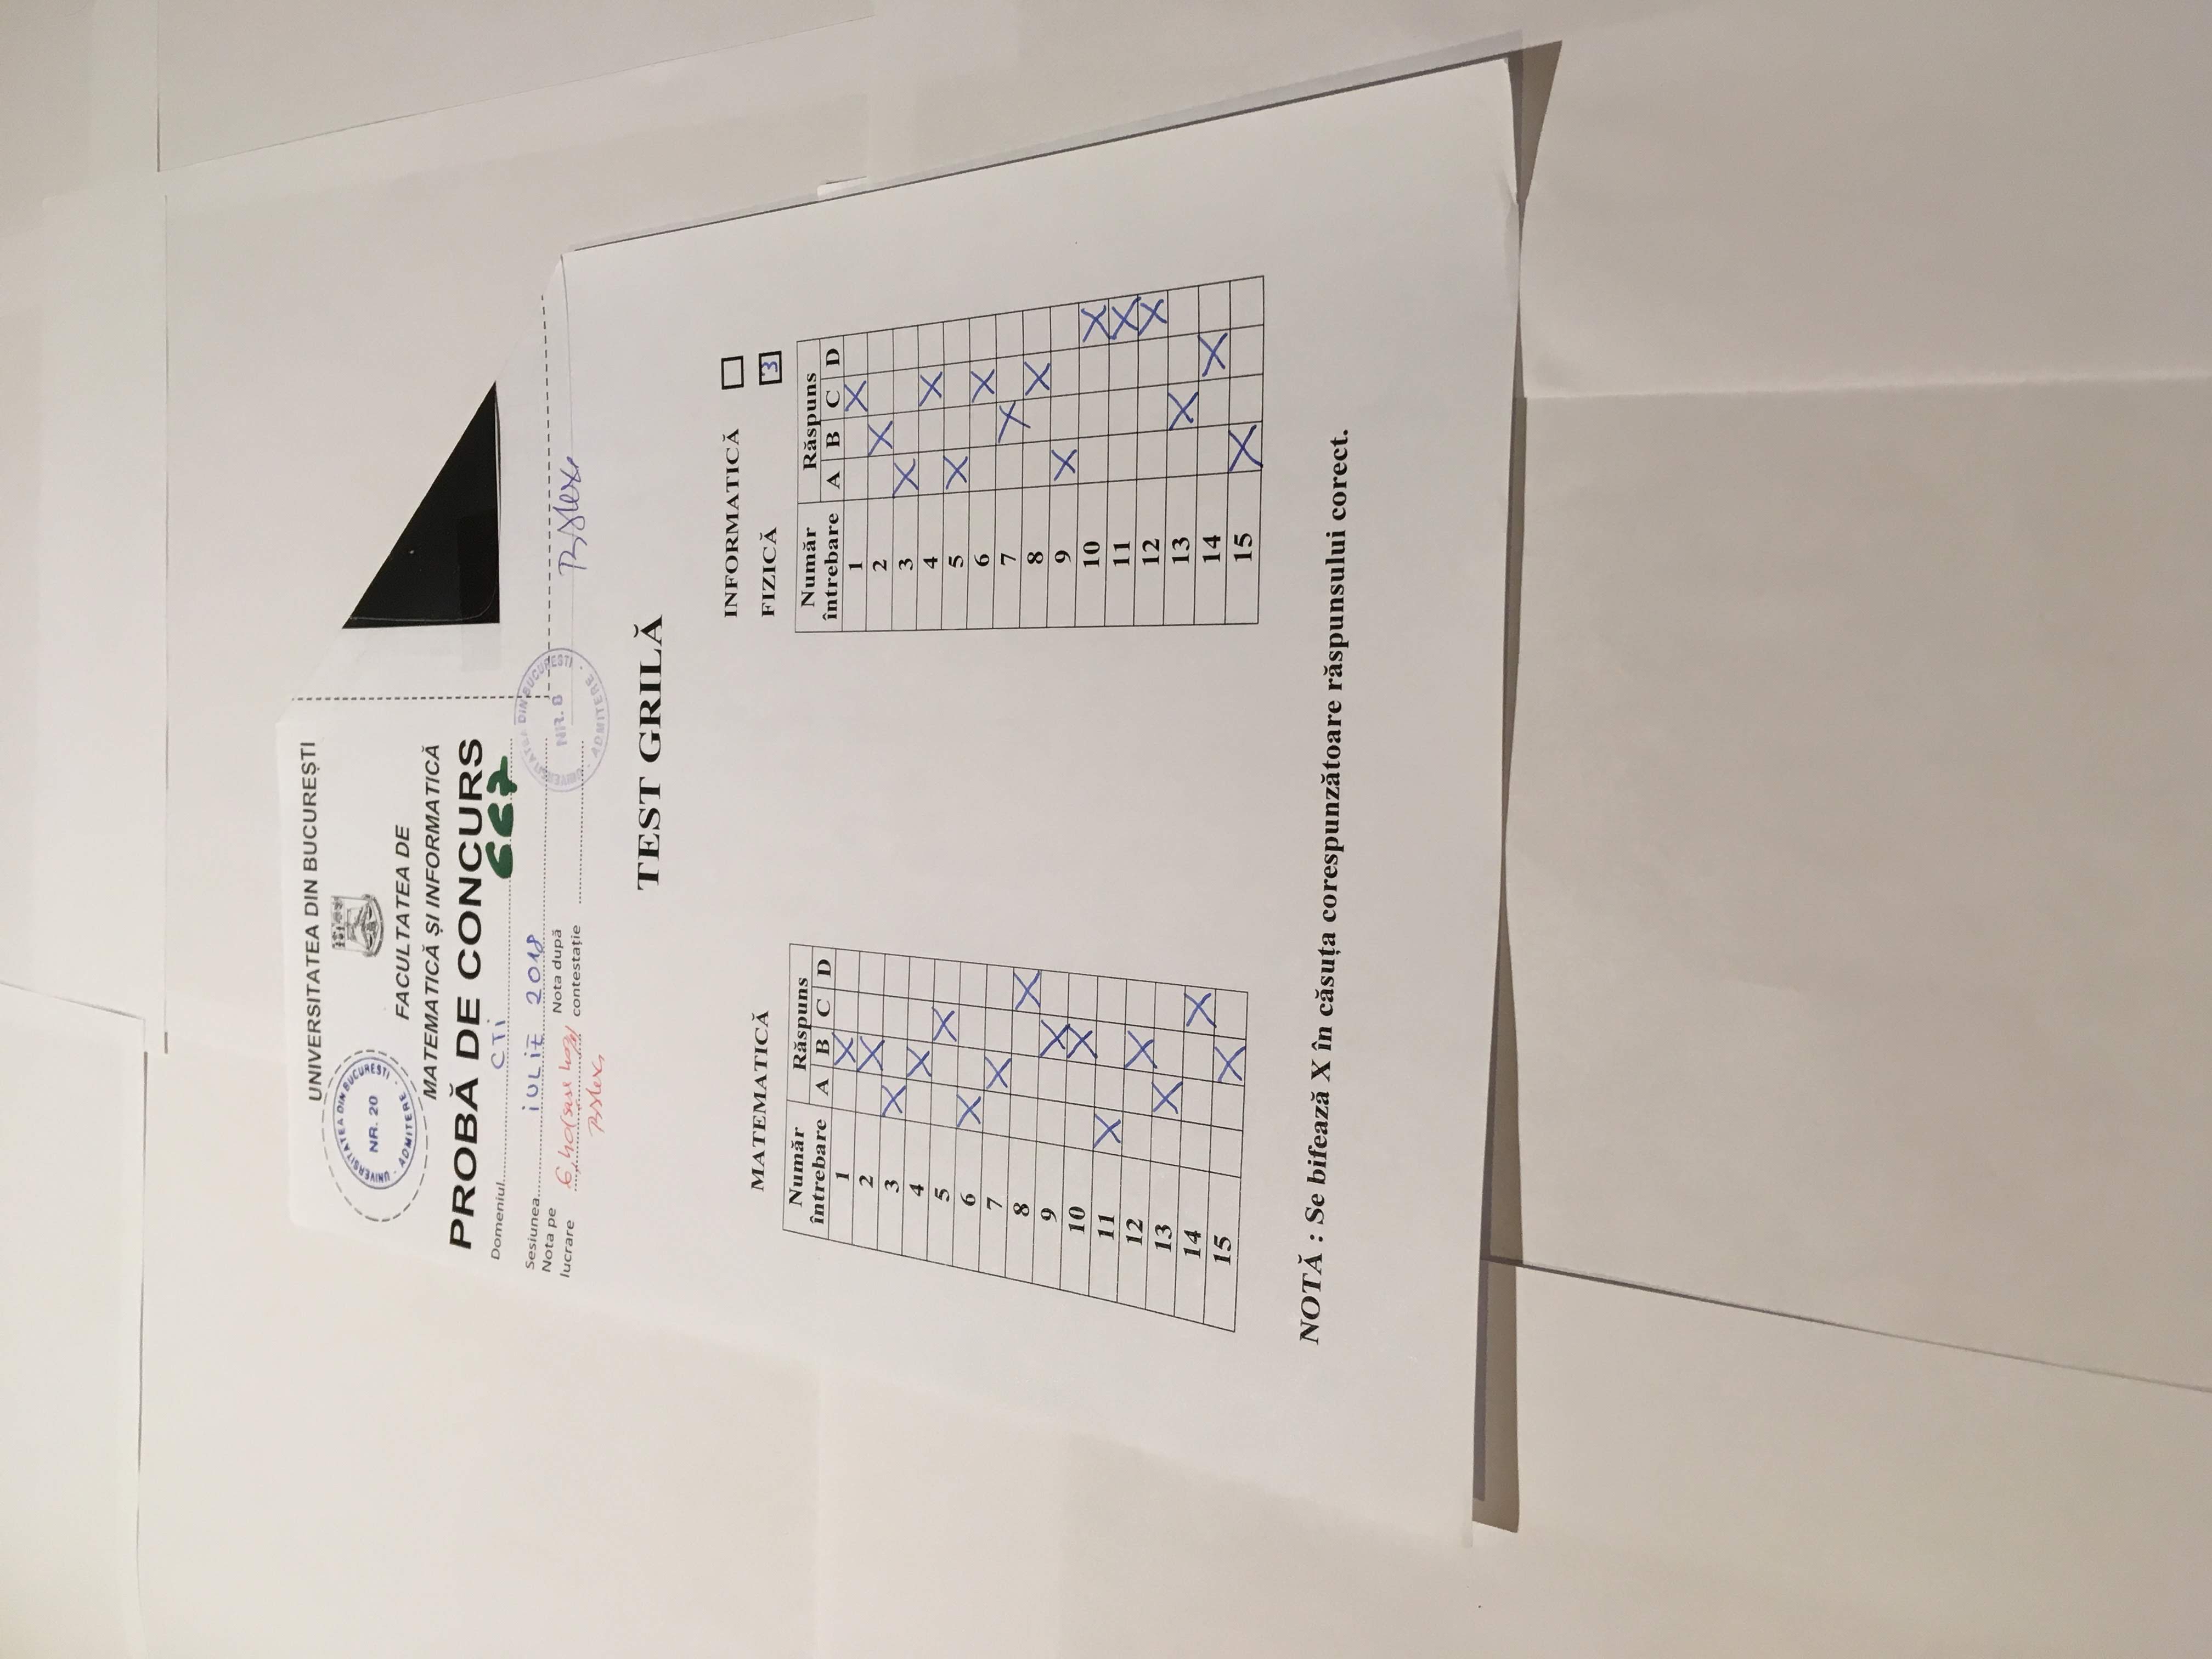 UNIVERSITATEA DIN BUCUREȘTI
UNIVERSITATEA DIN BUCUREȘTI
NR. 20
ADMITERE
FACULTATEA DE
MATEMATICĂ ȘI INFORMATICĂ
PROBĂ DE CONCURS
Domeniul CTi 667
Sesiunea iULiE 2018
Nota pe lucrare 6,40 (șase
Nota după contestație
UNIVERSITATEA DIN BUCUREȘTI
NR. 8
ADMITERE
TEST GRILĂ
MATEMATICĂ
Număr întrebare Răspuns
A B C D
1 X
2 X
3 X
4 X
5 X
6 X
7 X
8 X
9 X
10 X
11 X
12 X
13 X
14 X
15 X
INFORMATICĂ
FIZICĂ 3
Număr întrebare Răspuns
A B C D
1 X
2 X
3 X
4 X
5 X
6 X
7 X
8 X
9 X
10 X
11 X
12 X
13 X
14 X
15 X
NOTĂ : Se bifează X în căsuța corespunzătoare răspunsului corect.